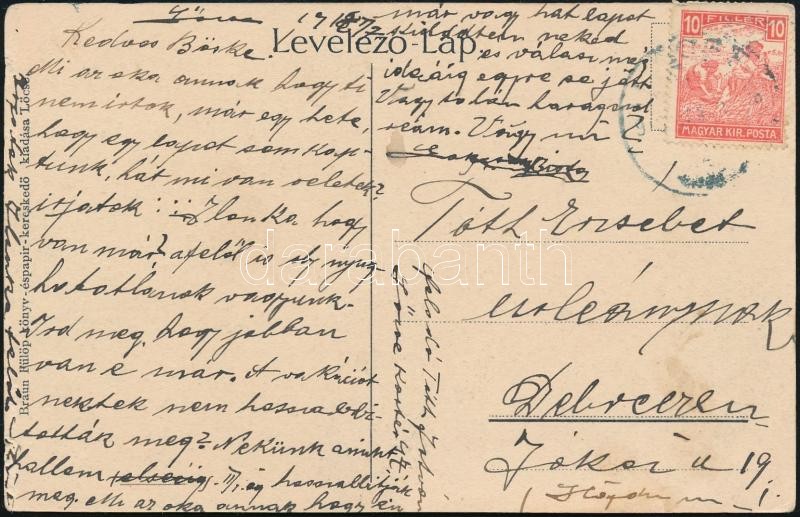 Lőcse 1918 /2
Kedves Böske!
Mi az oka annak hogy ti
nem irtok, már egy hete,
hogy egy lapot sem kap-
tunk, hát mi van veletek?
irjatok!!! Ilonka hogy
van már? afelől is oly nyug-
hatatlanok vagyunk.
Ird meg, hogy jobban
van e már. A vakációt
nektek nem hosszabbi-
tották meg? Nekünk amint
hallom elsejéig. ig hosszabitják
meg. Mi az oka annak hogy én
már vagy hat lapot
küldtem neked
és válasz még
idáig egyre se jött
Vagy talán haragszol
reám.
Levelező-Lap.
10 FILLÉR 10
MAGYAR KIR. POSTA
Tóth Erzsebet
urleánynak
Debreczen
Jókai u 19.
Feladó Tóth István
Lőcse
Braun Fülöp könyv- és papir-kereskedő kiadása Lőcse
darabanth